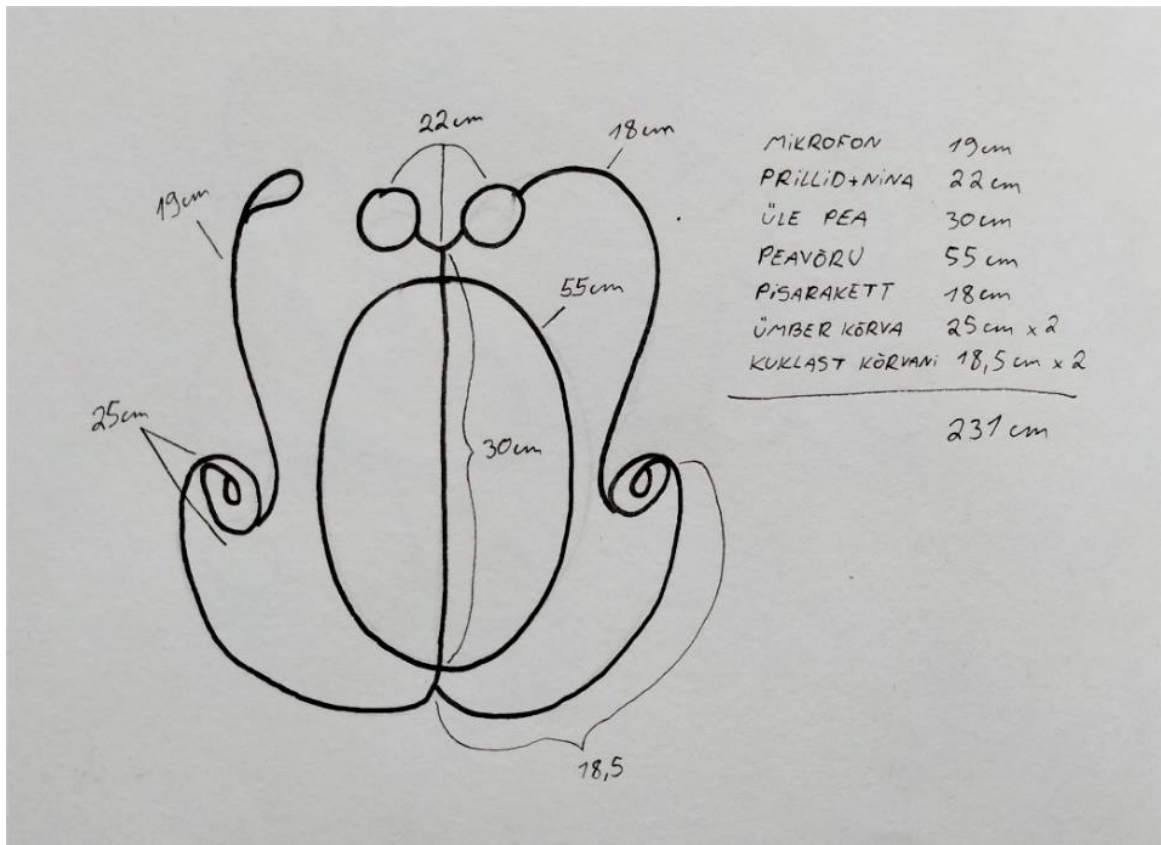 22cm
18cm
19cm
55cm
25cm
30cm
18,5
MIKROFON 19cm
PRILLID+NINA 22cm
ÜLE PEA 30cm
PEAVÕRU 55cm
PISARAKETT 18cm
ÜMBER KÕRVA 25cm x 2
KUKLAST KÕRVANI 18,5cm x 2
231cm